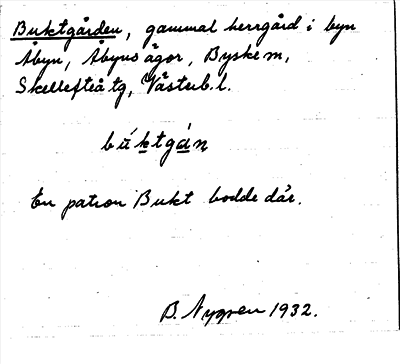 Buktgården, gammal herrgård i byn
Åbyn, Åbyns ägor, Byske m,
Skellefteå tg, Västerb. l.
búktgán
En patron Bukt bodde där.
B. Nygren 1932.